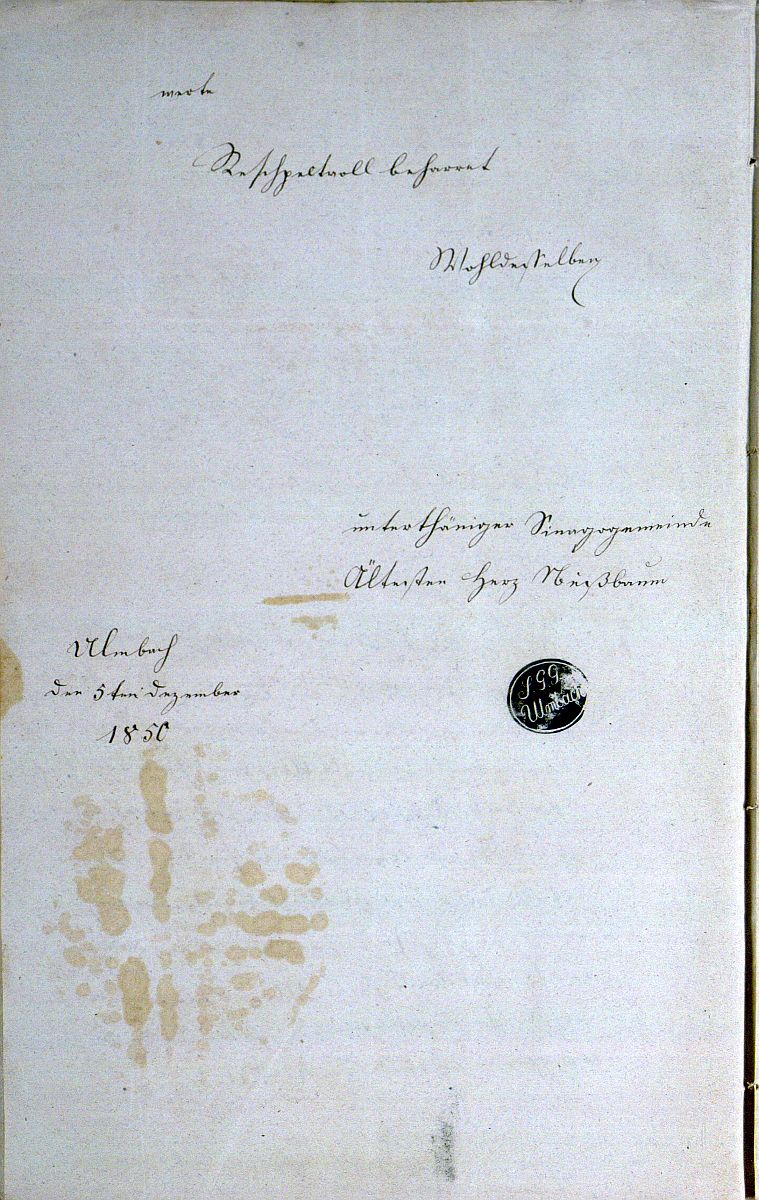 werte
Reschpektvoll beharret
Wohldesselben
unterthäniger Sinagogemeinde
Ältersten Herz Nußbaum
Ulmbach
den 5ten Dezember
1850
S.G.G.
Ulmbach